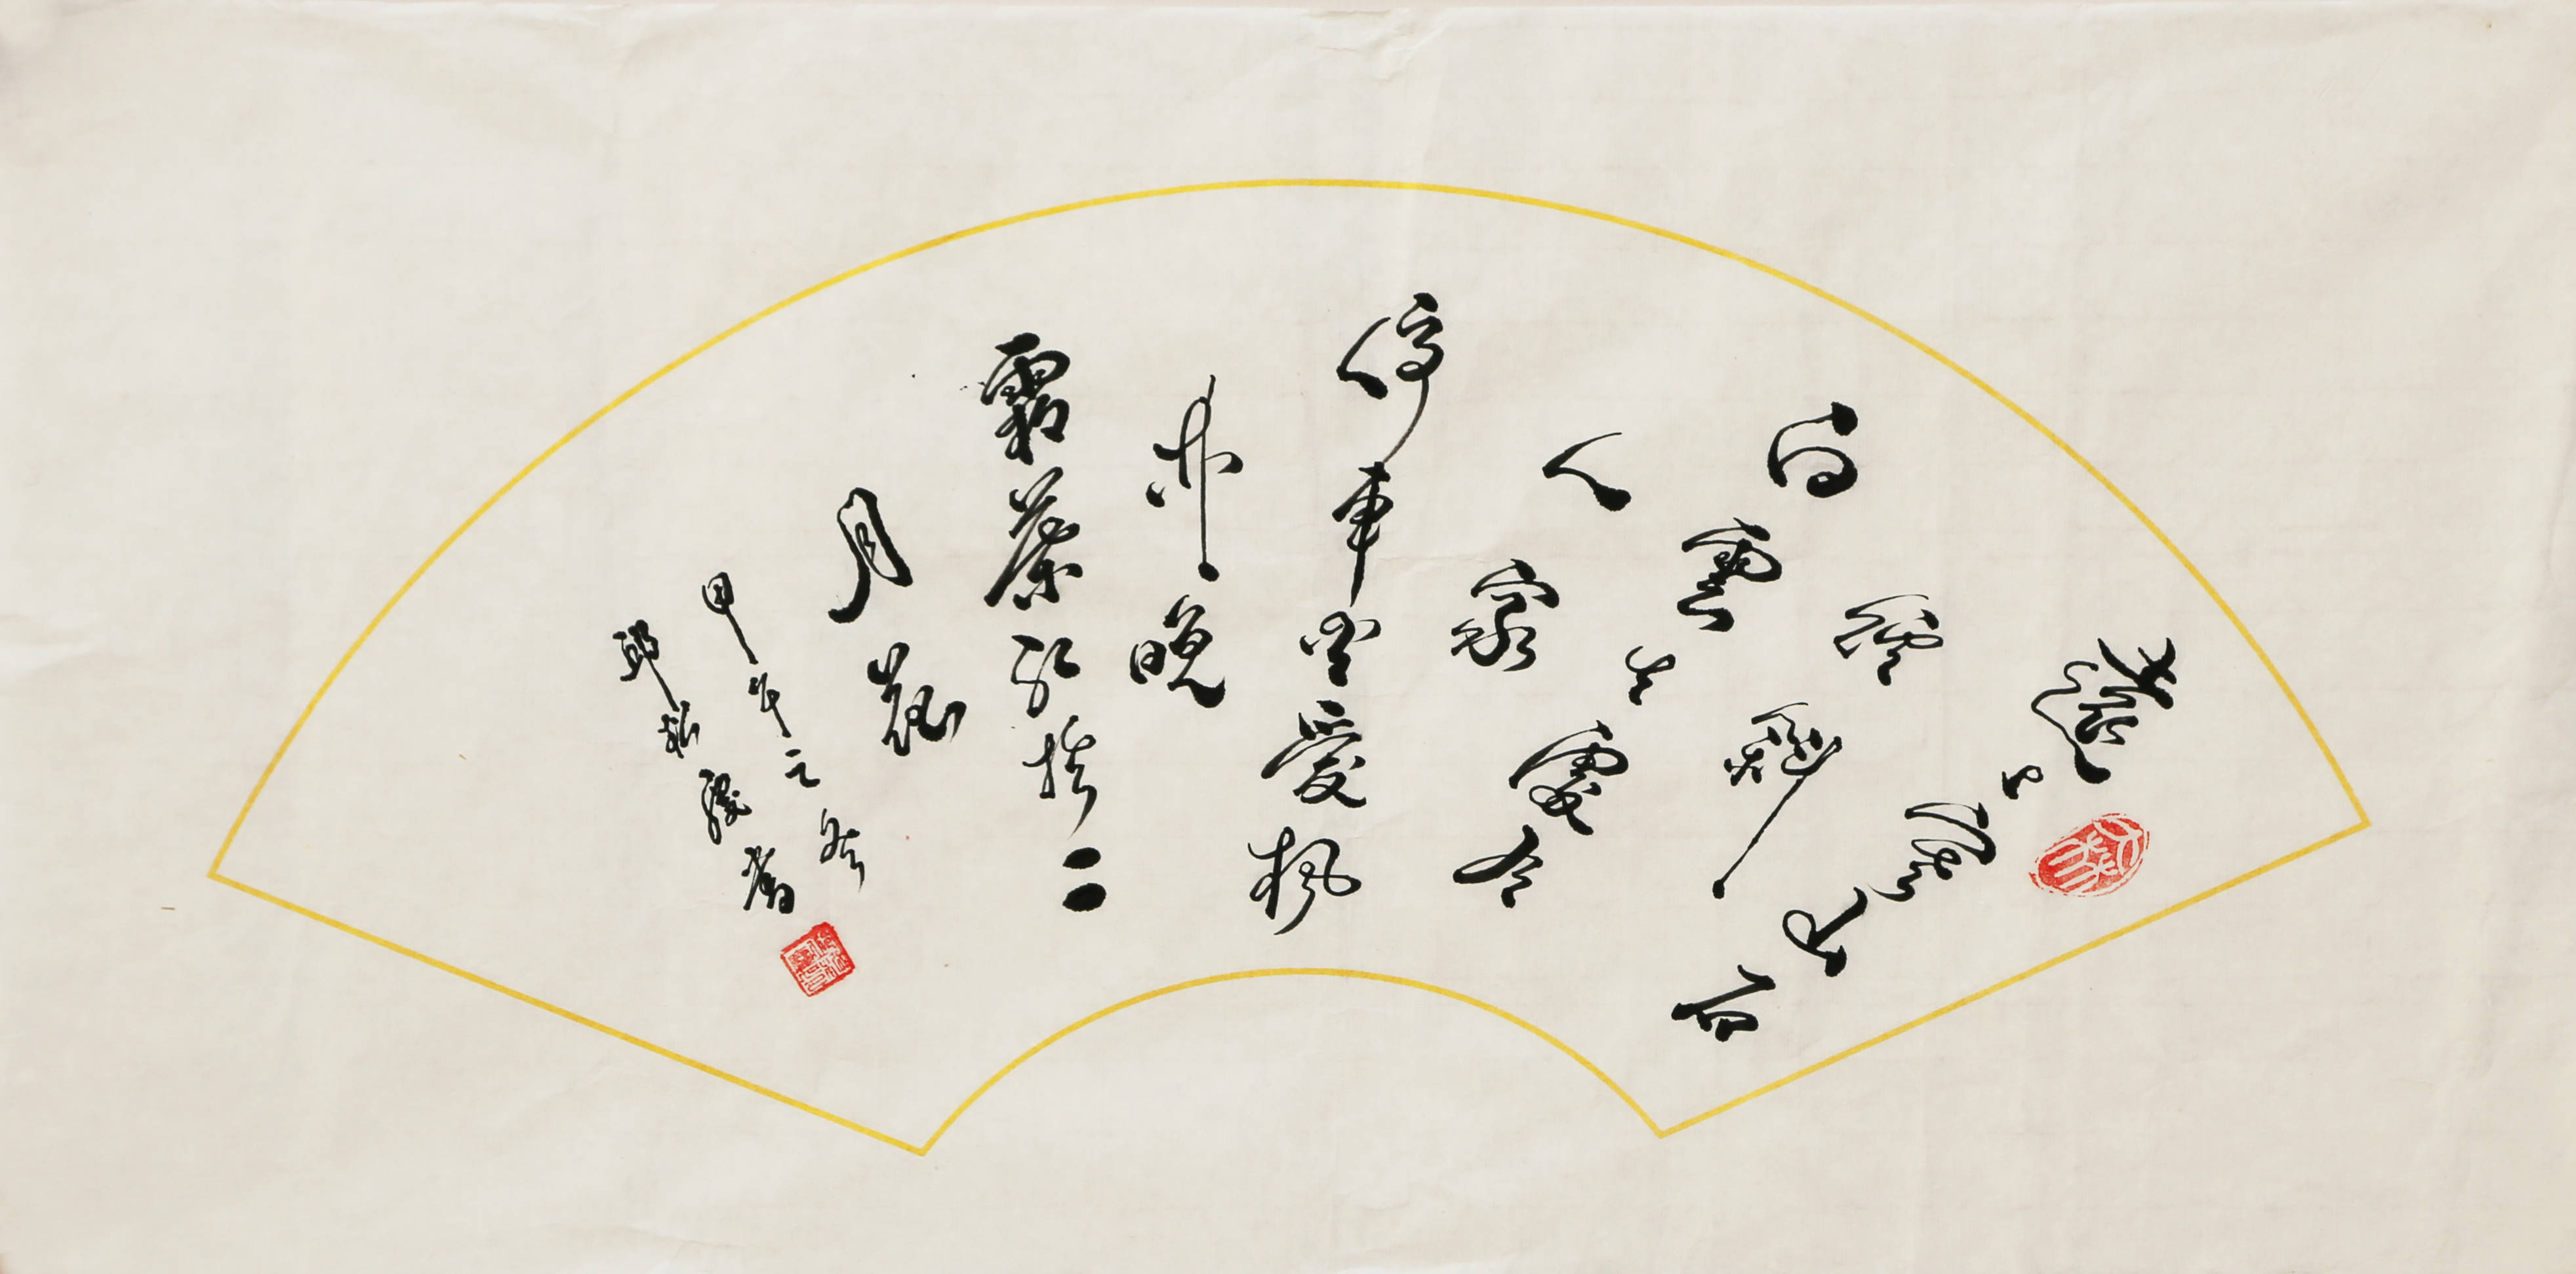 遠上寒山石
徑斜
白雲生處有
人家
停車坐愛楓
林晚
霜葉紅於二
月花
甲午之冬
邱 書